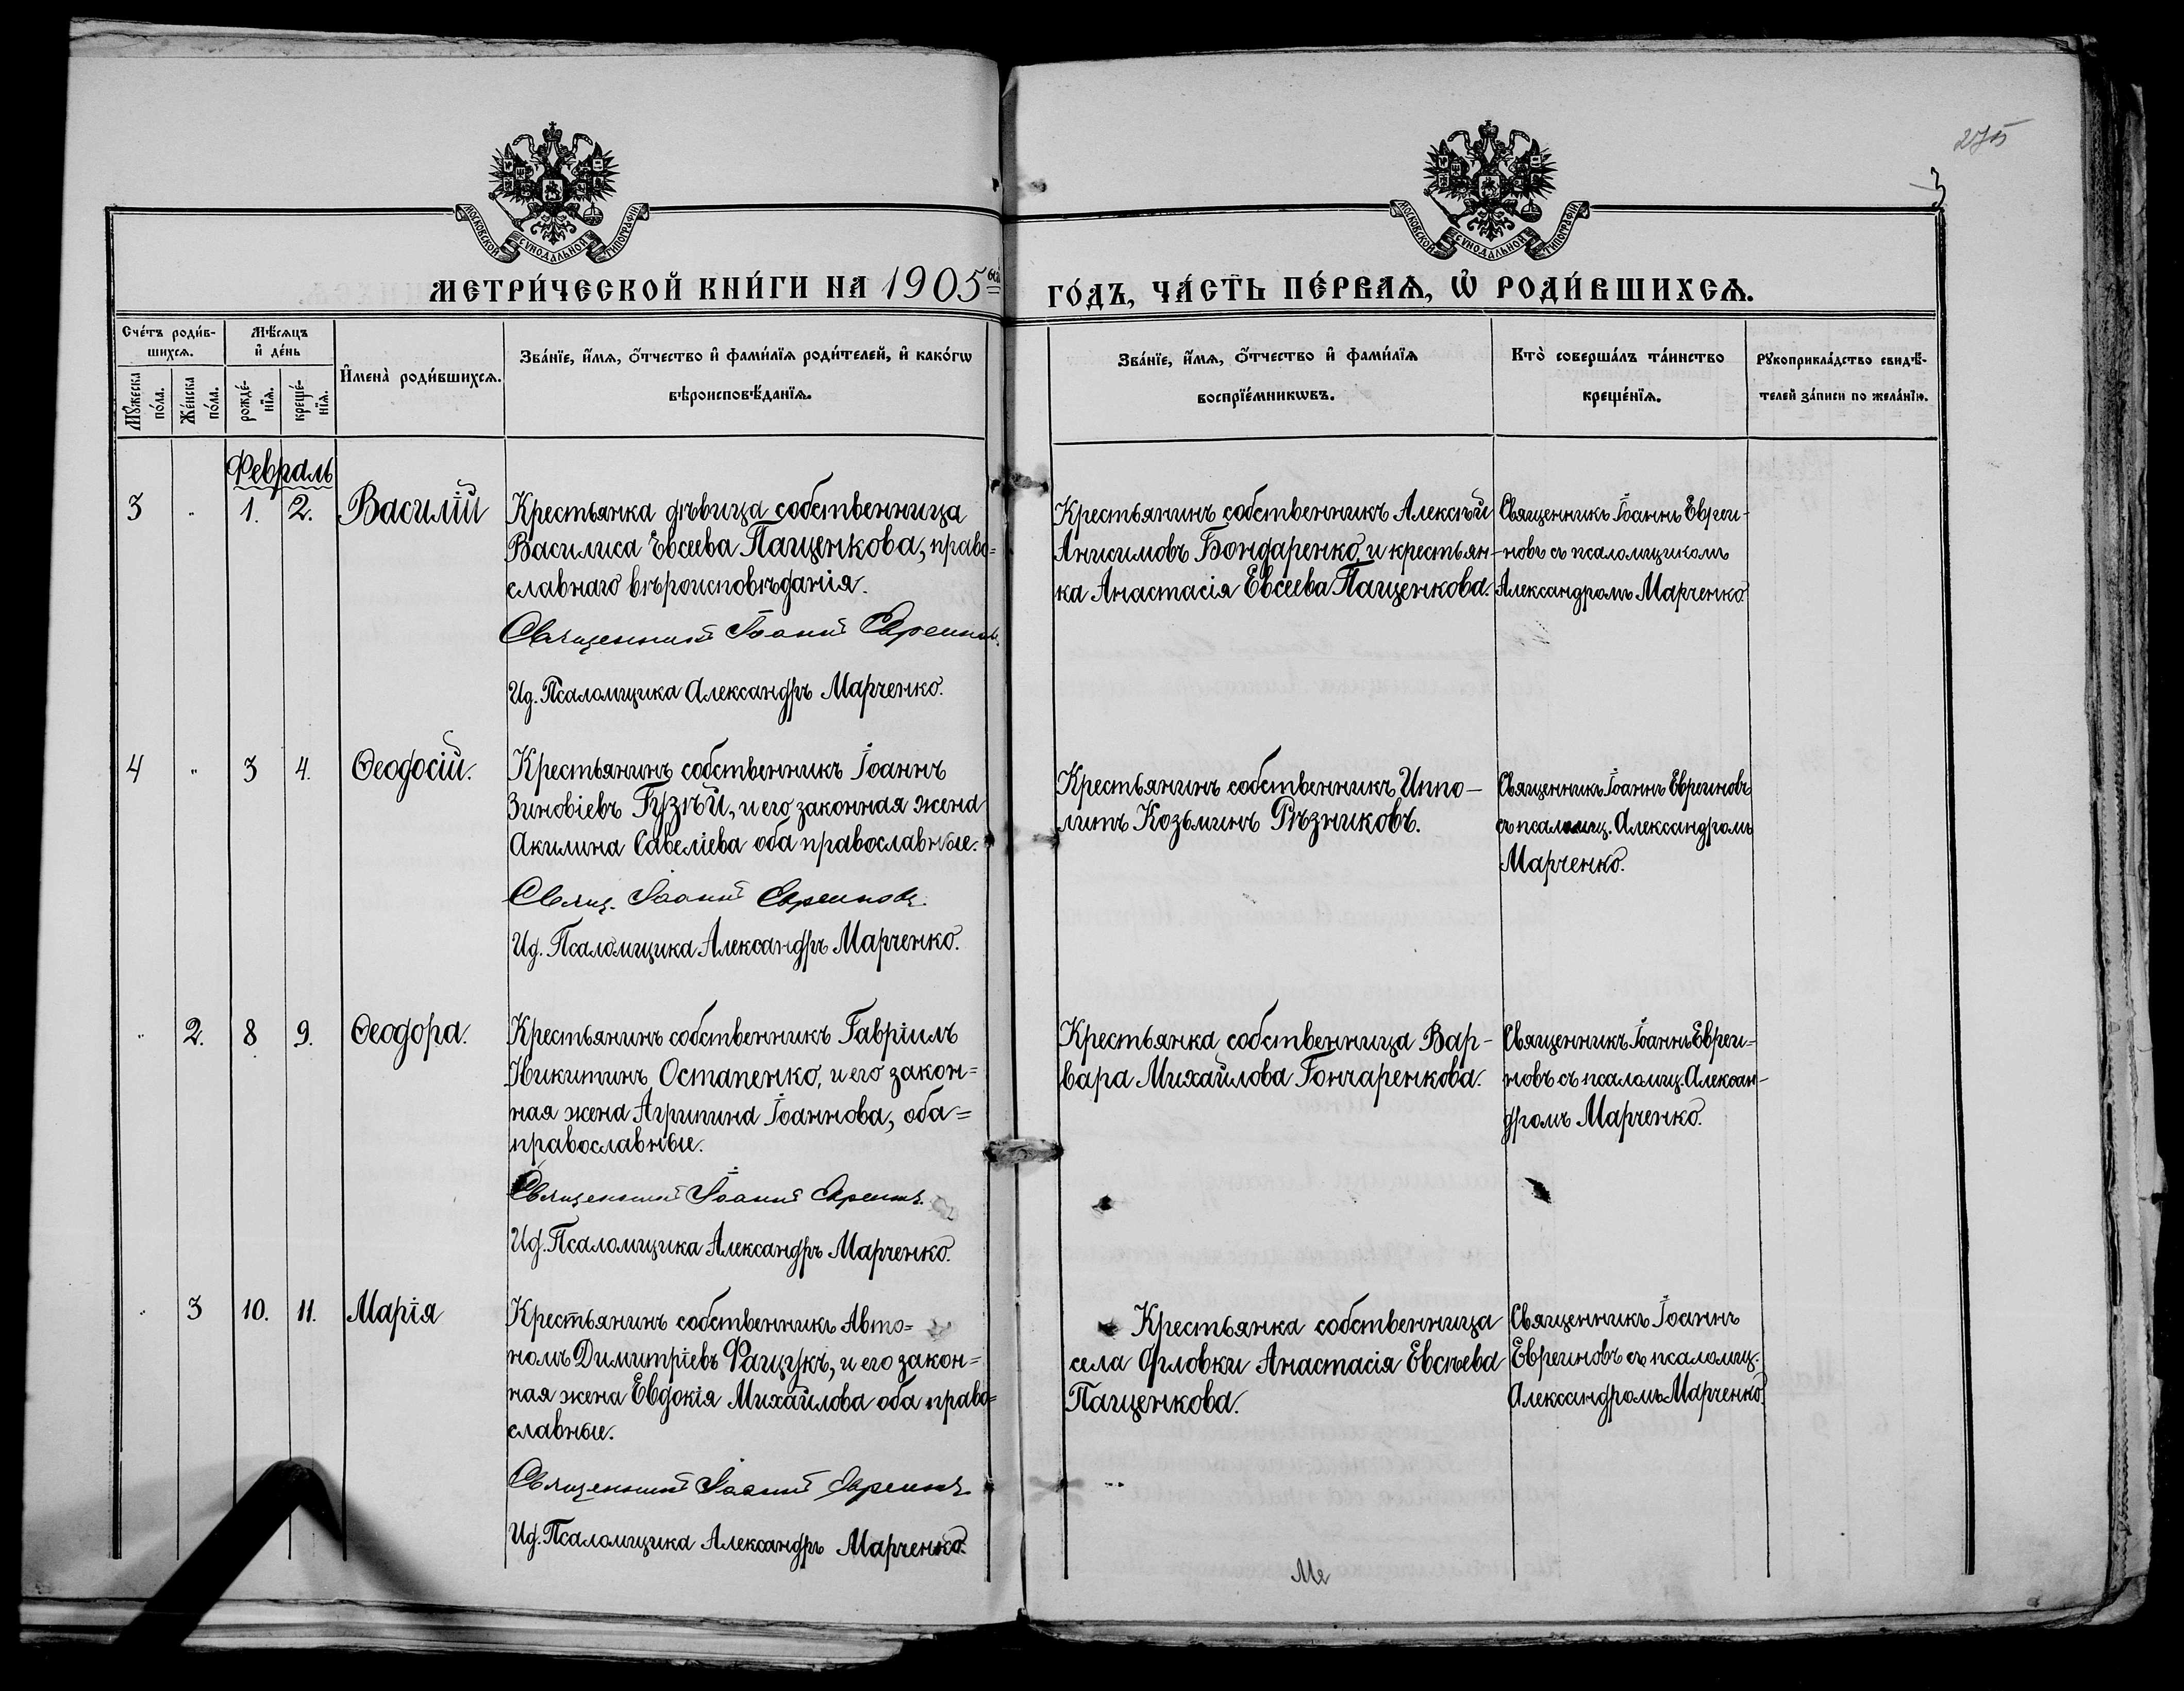 275
3
МОСКОВСКОЙ СѴНОДАЛЬНОЙ ТИПОГРАФІИ
МОСКОВСКОЙ СѴНОДАЛЬНОЙ ТИПОГРАФІИ
МЕТРИ́ЧЕСКОЙ КНИ́ГИ НА 1905 ГО́ДЪ, ЧА́СТЬ ПЕ́РВАѦ, Ѽ РОДИ́ВШИХСѦ.
Сче́тъ роди́в-
шихсѧ.
Мꙋ́жеска по́ла.
Же́нска по́ла.
Мѣ́сѧцъ
и҆ де́нь
рожде́-
нїѧ.
креще́-
нїѧ.
И҆мена̀ роди́вшихсѧ.
Зва́нїе, и҆́мѧ, о҆́тчество и҆ фами́лїѧ роди́телей, и҆ како́гѡ
вѣроисповѣ́данїѧ.
Зва́нїе, и҆́мѧ, о҆́тчество и҆ фами́лїѧ
воспрїе́мникѡвъ.
Кто̀ соверша́лъ та́инство
креще́нїѧ.
Рꙋкоприкла́дство свидѣ́-
телей за́писи по жела́нїю.
Февраль
3 " 1. 2. Василій
Крестьянка дѣвица собственница
Василиса Евсеева Пащенкова, право=
славнаго вѣроисповѣданія.
Священникъ Іоаннъ Евреиновъ.
Ид. Псаломщика Александръ Марченко.
Крестьянинъ собственникъ Алексѣй
Анисимовъ Бондаренко, и крестьян-
ка Анастасія Евсеева Пащенкова.
Священникъ Іоаннъ Евреи-
новъ съ псаломщикомъ
Александромъ Марченко
4 " 3 4. Ѳеодосій.
Крестьянинъ собственникъ Іоаннъ
Зиновіевъ Гузѣй, и его законная жена
Акилина Савеліева оба православные.
Свящ. Іоаннъ Евреиновъ.
Ид. Псаломщика Александръ Марченко.
Крестьянинъ собственникъ Иппо-
литъ Козьминъ Рѣзниковъ.
Священникъ Іоаннъ Евреиновъ
съ псаломщ. Александромъ
Марченко.
" 2. 8 9. Ѳеодора.
Крестьянинъ собственникъ Гавріилъ
Никитинъ Остапенко, и его закон=
ная жена Агрипина Іоаннова, оба=
православные.
Священникъ Іоаннъ Евреиновъ.
Ид. Псаломщика Александръ Марченко.
Крестьянка собственница Вар-
вара Михайлова Гончаренкова.
Священникъ Іоаннъ Евреи=
новъ съ псаломщ. Алексан-
дромъ Марченко.
" 3 10. 11. Марія
Крестьянинъ собственникъ Авто=
номъ Димитріевъ Фащукъ, и его закон=
ная жена Евдокія Михайлова оба право=
славные.
Священникъ Іоаннъ Евреиновъ
Ид. Псаломщика Александръ Марченко.
Крестьянка собственница
села Орловки Анастасія Евсѣева
Пащенкова.
Священникъ Іоаннъ
Евреиновъ съ псаломщ.
Александромъ Марченко.
Ме